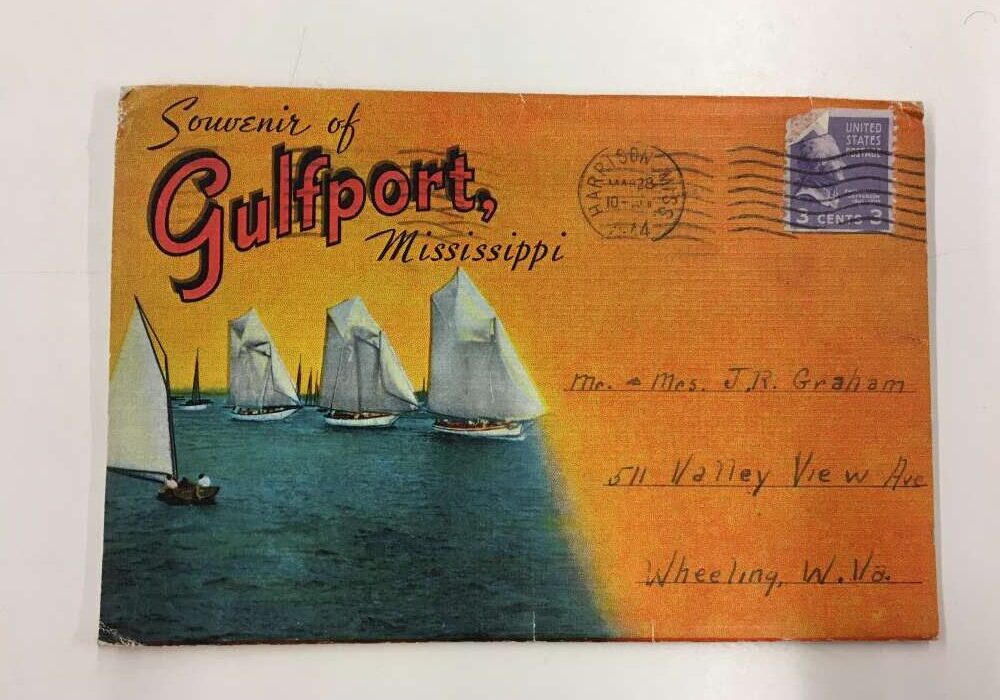 Souvenir of
Gulfport,
Mississippi
HARRISON
MISS.
MAR 28
UNITED
STATES
POSTAGE
3 CENTS 3
Mr. & Mrs. J.R. Graham
511 Valley View Ave
Wheeling, W.Va.